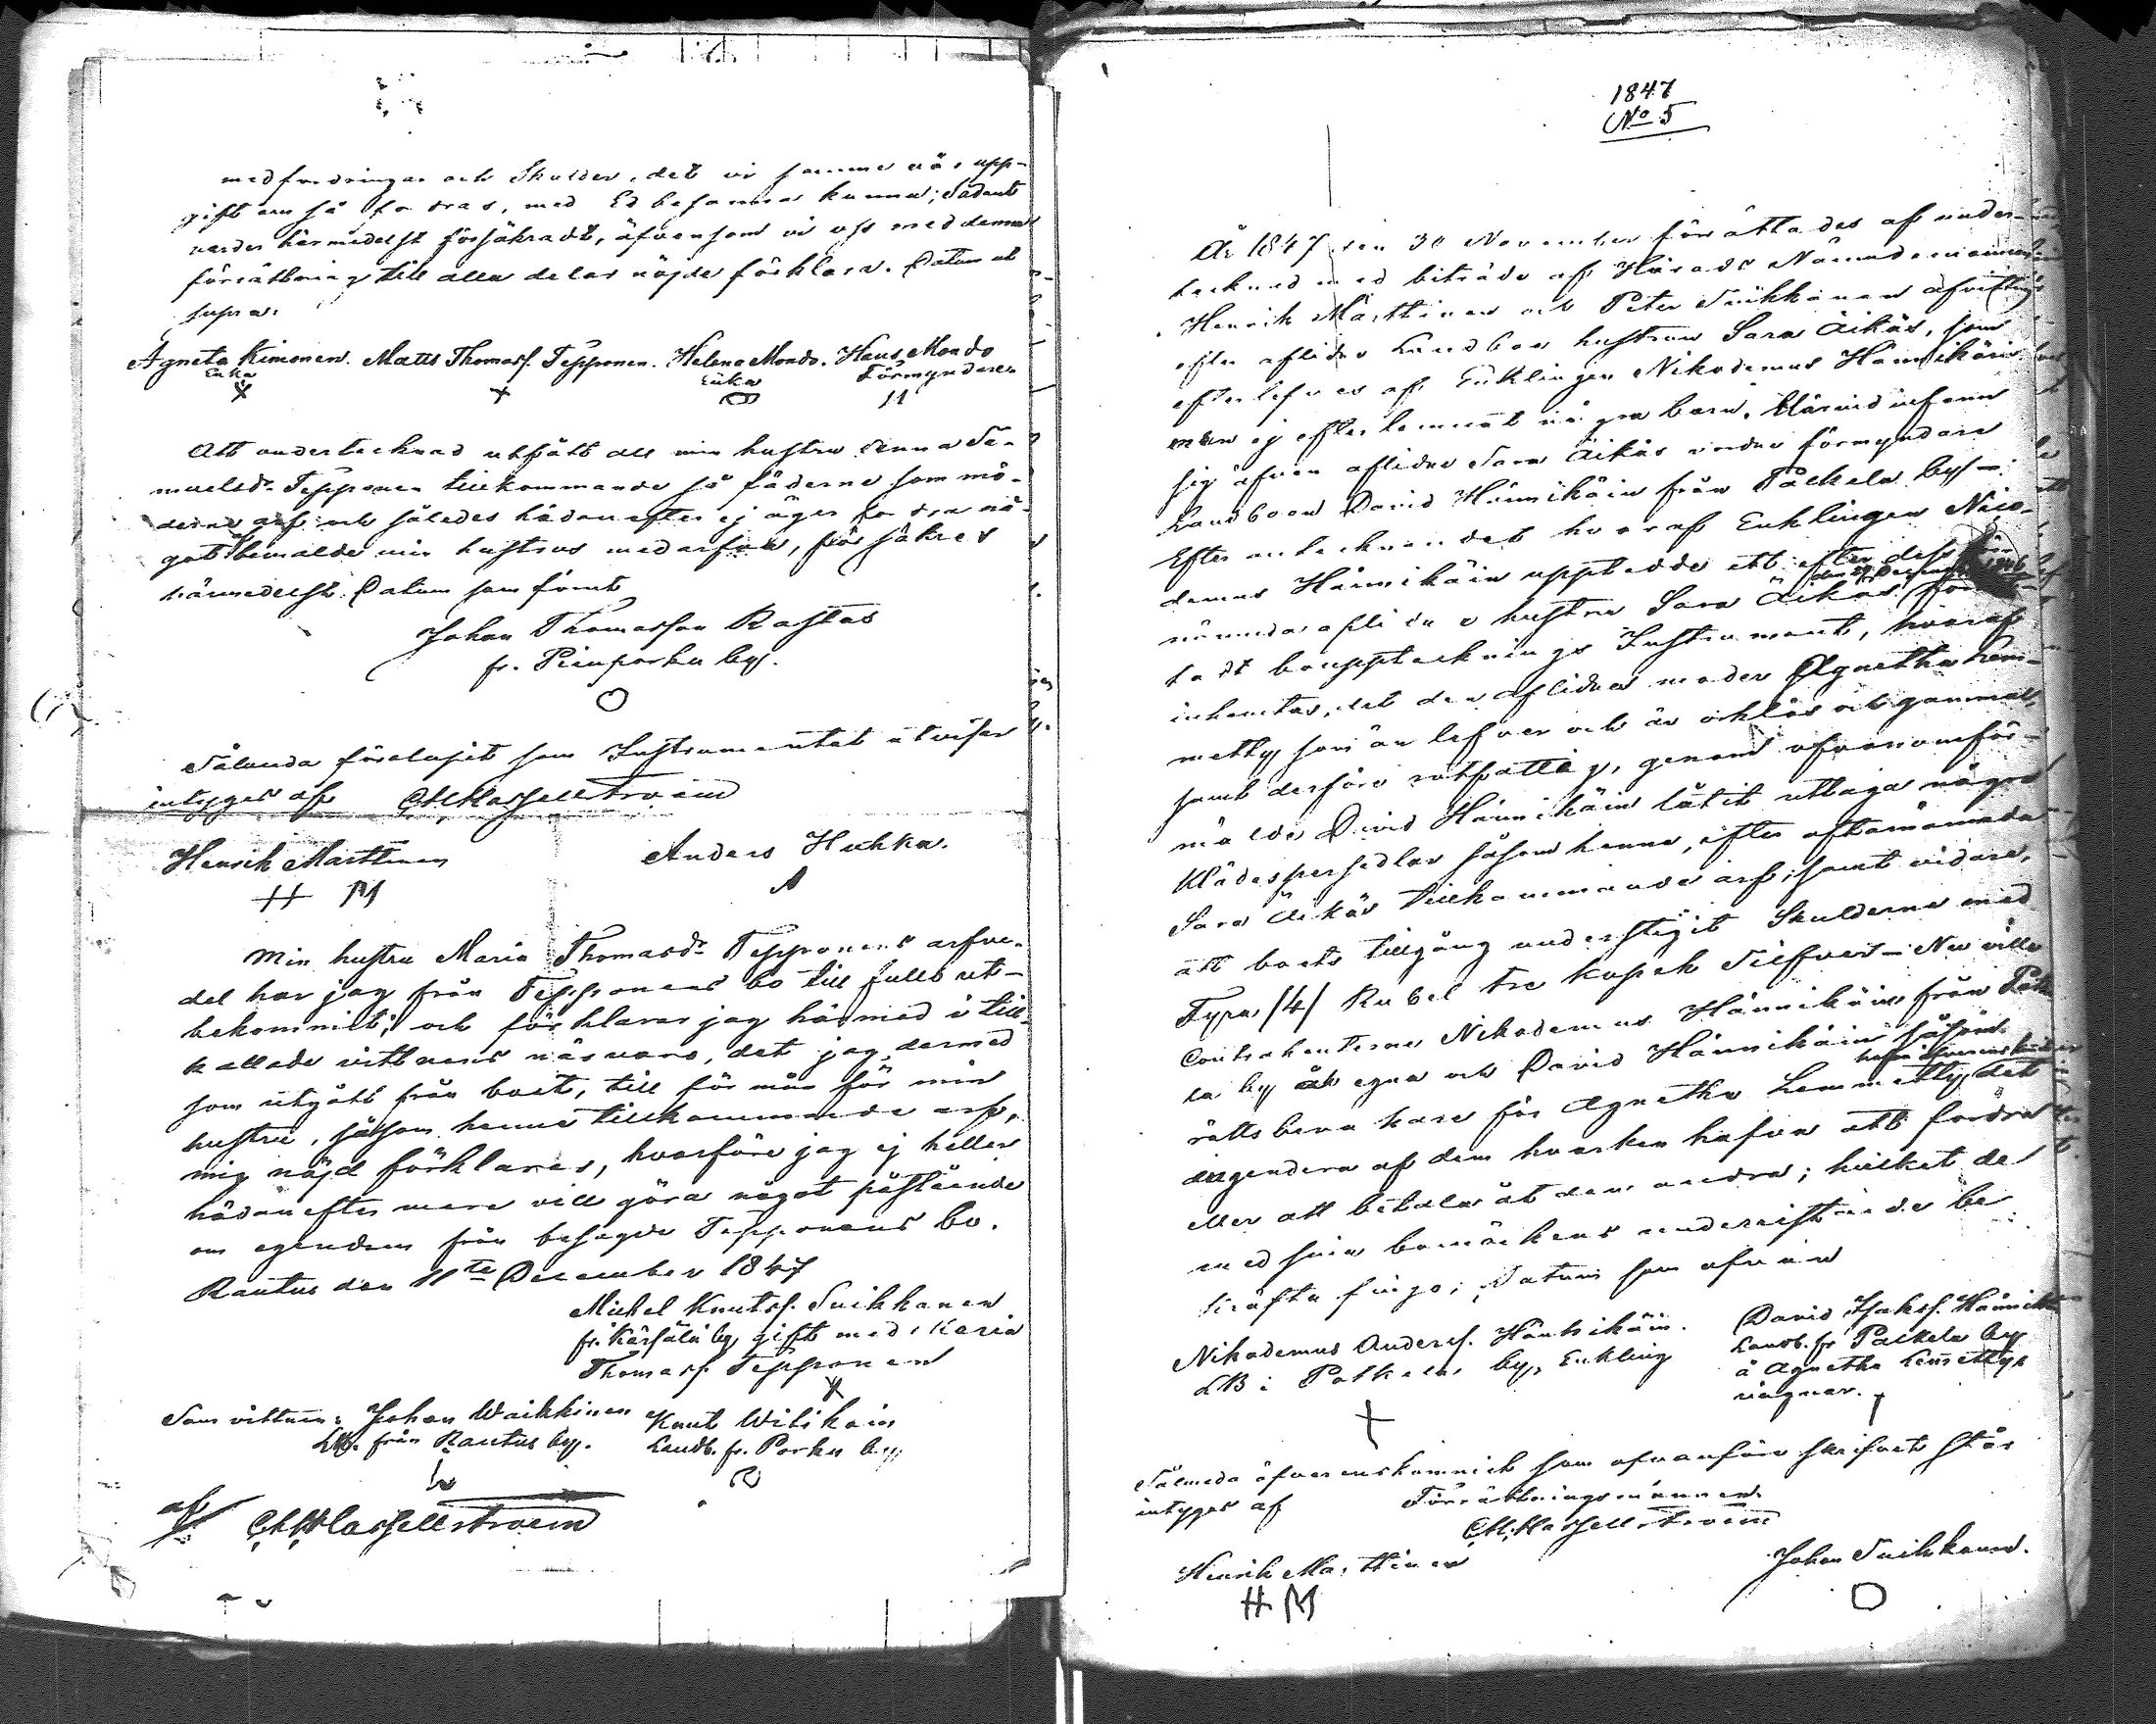 med fordringar och Skulder, det vi samme vår upp-
gift om så fordras, med Ed besanna kunna; Sådant
varder härmedelst försäkradt, äfvensom vi oss med denna
förrättning till alla delar nöjde förklara. Datum ut
supra.
Agneta Kimonen. Matts Thomass. Tepponen. Helena Mondo. Hans Mondo
Enka Enka Förmyndare
Att undertecknad utfått all min hustru Anna Sa-
muelsdr Tepponen tillkommande så fäderne som mö-
derne arf och således hädanefter ej äger fordra nå-
got bemälde min hustrus medarfvar, försäkras
härmedelst. Datum som förut
Johan Thomasson Rastas
fr. Pienporku by.
Sålunda förelupit som Instrumentet utvisar
intygas af CMHassellstroem
Henrik Marttinen Anders Huhka.
H M A
Min hustru Maria Thomasdr Tepponens arfve-
del har jag från Tepponens bo till fullo ut-
bekommit; och förklarar jag härmed i till-
kallade vittnens närvaro, det jag dermed
som utgått från boet, till förmån för min
hustru, såsom henne tillkommande arf,
mig nöjd förklarar, hvarföre jag ej heller
hädanefter mera vill göra något påstående
om egendom från besagde Tepponens bo.
Rautus den 11te December 1847
Michel Knutss. Suikkanen
fr. Kärsälä by, gift med Maria
Thomasd. Tepponen
Som vittnen: Johan Waikkinen Knut Wilikain
LB. från Rautus by. Landb. fr. Porku by
af CMHassellstroem
1847
No 5
År 1847 den 30 November förättades af under-
tecknad med biträde af Härads Nämndemännen
Henrik Marttinen och Peter Suikkanen afvittring
efter aflidna Landboe hustrun Sara Äikäs, som
efterlefves af Enklingen Nikodemus Hännikäin
men ej efterlemnat några barn. Härvid infann
sig äfven aflidna Sara Äikäs modus förmyndare
Landboen David Hännikäin från Palkela by.
Efter antecknandet hvaraf Enklingen Nico-
demus Hännikäin upptedde ett efter dess
nämnda aflidna hustru Sara Äikäs
den 29 December 1846
tadt boupptecknings Instrument, hvaraf
inhemtas, det den aflidnas moder Agnetha Lem-
metty som än lefver och är orklös och gammal,
samt derföre rotfattig, genom ofvananför-
mälde David Hännikäin låtit uttaga några
Klädespersedlar såsom henne, efter oftanämnda
Sara Äikäs tillkommande arf; samt vidare,
att boets tillgång understigit Skulderne med
Fyra /4/ Rubel tre kopek Silfver – Nu ville
Contrahenterne Nikodemus Hännikäin från Palke-
la by å egna och David Hännikäin såsom
rätts bevakare för Agnetha Lemmetty, det
ingendera af dem hvarken hafva att fordra
eller att betala åt den andra; hvilket de
med sina bomärkens underristande be
kräfta fingo; Datum som ofvan
Nikodemus Anderss. Hännikäin. David Isakss. Hännikäin
LB i Palkela by, Enkling Landb. fr Palkela by
å Agnetha Lemettys
vägnar.
Sålunda öfverenskommit som ofvanföre skrifvet står
intygas af Förrättningsmännen.
CMHassellstroem
Henrik Marttinen Johan Suikkanen.
H M